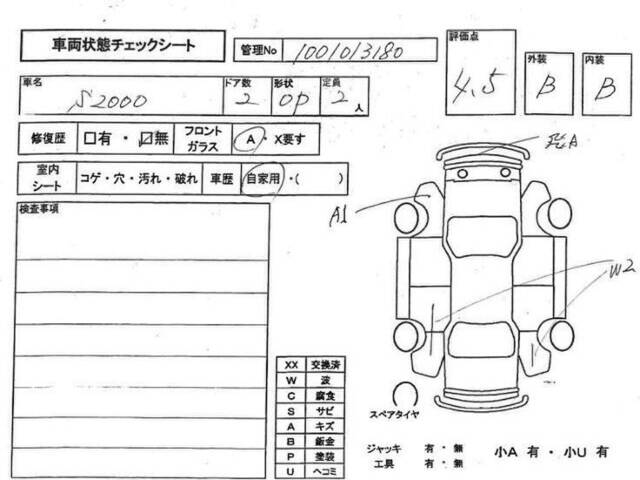 車両状態チェックシート
管理No 1001013180
評価点 4.5
外装 B
内装 B
車名 S2000
ドア数 2
形状 OP
定員 2人
修復歴 □有・☑無
フロントガラス A・X要す
室内シート コゲ・穴・汚れ・破れ
車歴 自家用・( )
検査事項
A
A1
W2
XX 交換済
W 波
C 腐食
S サビ
A キズ
B 鈑金
P 塗装
U ヘコミ
スペアタイヤ
ジャッキ 有・無
工具 有・無
小A 有・小U 有